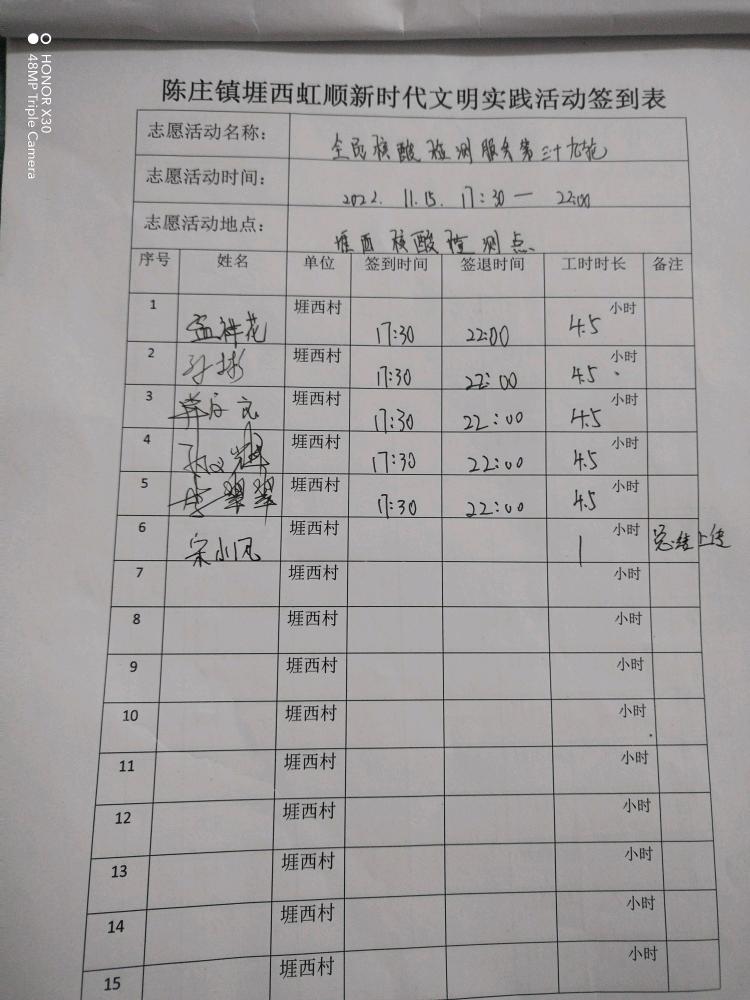 HONOR X30
48MP Triple Camera
陈庄镇堐西虹顺新时代文明实践活动签到表
志愿活动名称： 全民核酸检测服务第三十九轮
志愿活动时间： 2022. 11.15. 17:30 — 22:00
志愿活动地点： 堐西核酸检测点.
序号 姓名 单位 签到时间 签退时间 工时时长 备注
1 孟祥花 堐西村 17:30 22:00 4.5 小时
2 孙彬 堐西村 17:30 22:00 4.5 小时
3 堐西村 17:30 22:00 4.5 小时
4 堐西村 17:30 22:00 4.5 小时
5 李翠翠 堐西村 17:30 22:00 4.5 小时
6 宋小凤 堐西村 1 小时 总结上传
7 堐西村 小时
8 堐西村 小时
9 堐西村 小时
10 堐西村 小时
11 堐西村 小时
12 堐西村 小时
13 堐西村 小时
14 堐西村 小时
15 堐西村 小时